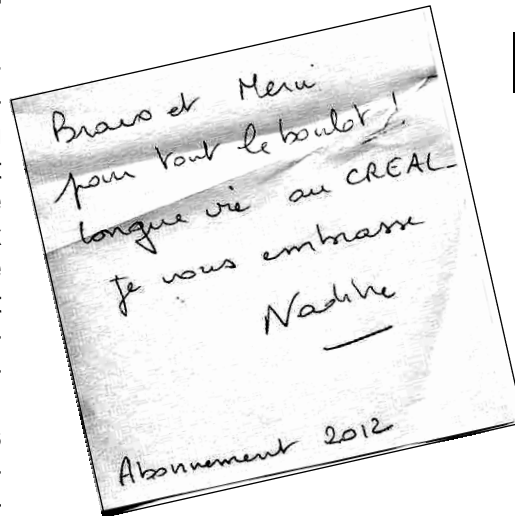 Bravo et Merci
pour tout le boulot !
longue vie au CREAL_
je vous embrasse
Nadine
Abonnement 2012